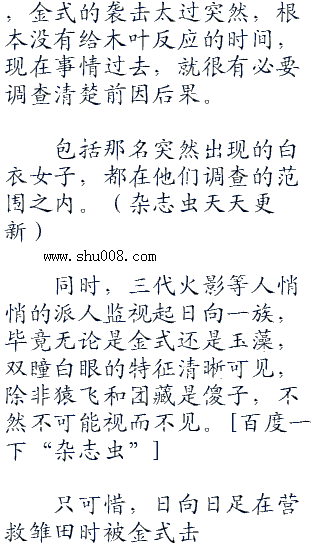 ，金式的袭击太过突然，根
本没有给木叶反应的时间，
现在事情过去，就很有必要
调查清楚前因后果。
包括那名突然出现的白
衣女子，都在他们调查的范
围之内。（杂志虫天天更
新）
www.shu008.com
同时，三代火影等人悄
悄的派人监视起日向一族，
毕竟无论是金式还是玉藻，
双瞳白眼的特征清晰可见，
除非猿飞和团藏是傻子，不
然不可能视而不见。[百度一
下“杂志虫”]
只可惜，日向日足在营
救雏田时被金式击